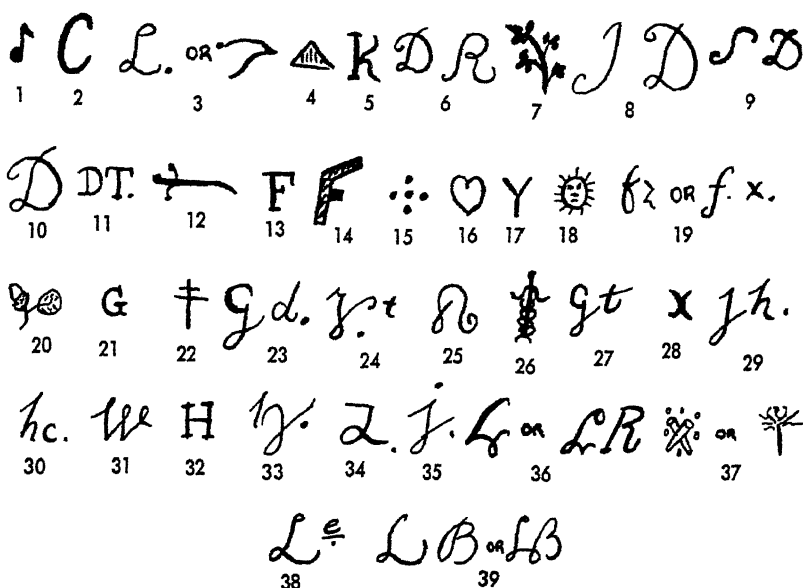 C L. OR K D R J D S D
1 2 3 4 5 6 7 8 9
D DT. F F Y f OR f. x.
10 11 12 13 14 15 16 17 18 19
G G d. t G t X j h.
20 21 22 23 24 25 26 27 28 29
hc. W H j. L OR L R OR
30 31 32 33 34 35 36 37
L e L B OR LB
38 39